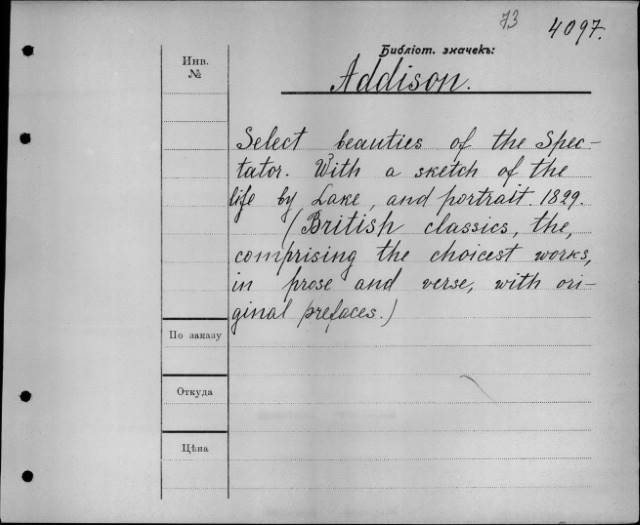 73
4097.
Библіот. значекъ:
Addison.
Инв.
№
Select beauties of the Spec-
tator. With a sketch of the
life by Lake, and portrait. 1829.
(British classics, the,
comprising the choicest works,
in prose and verse, with ori-
ginal prefaces.)
По заказу
Откуда
Цѣна